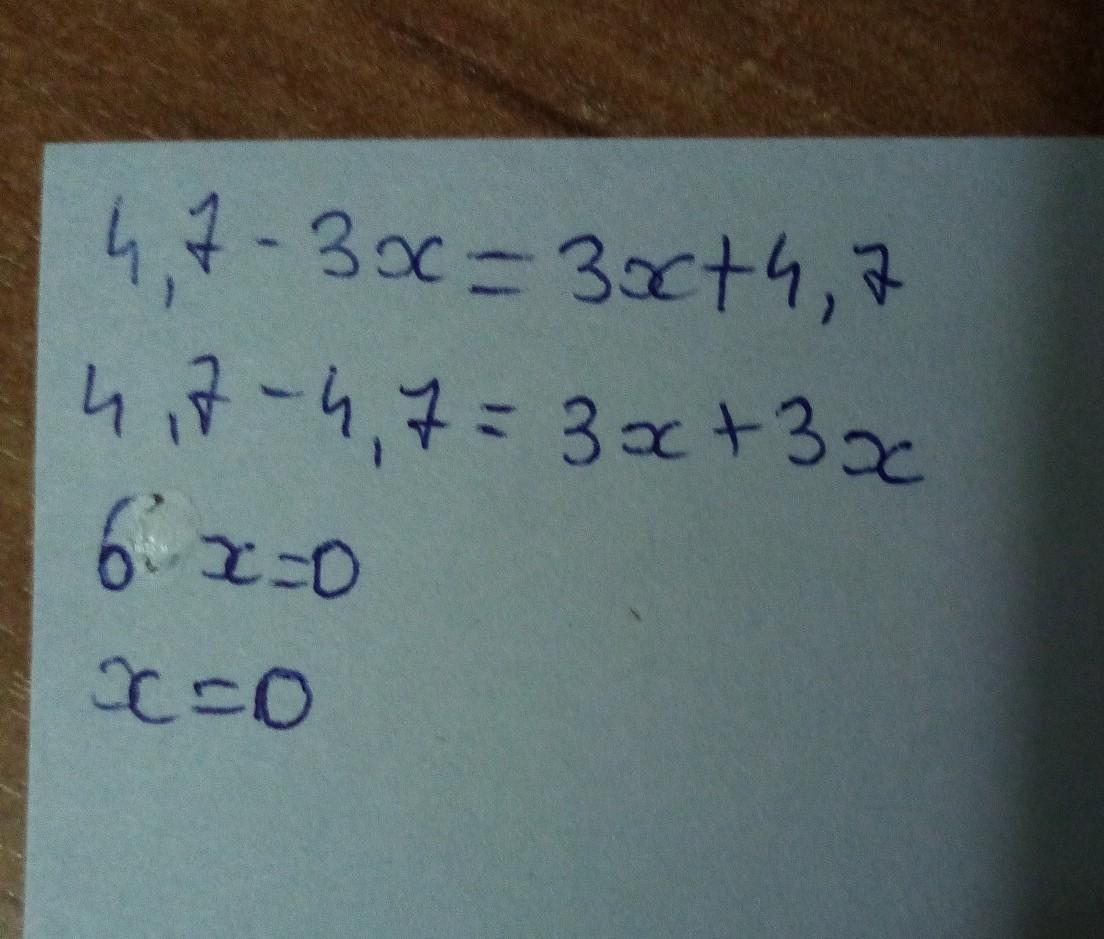 4,7-3x=3x+4,7
4,7-4,7=3x+3x
6x=0
x=0